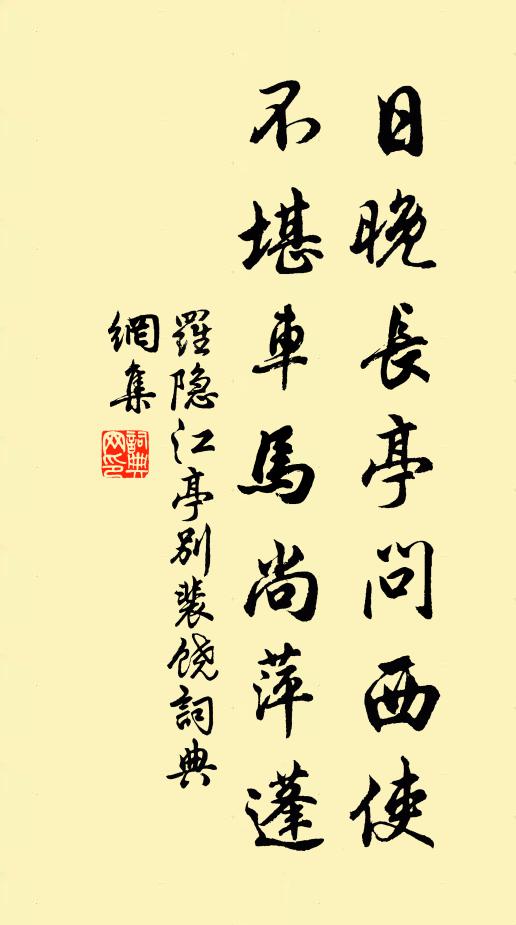 日晚长亭问西使
不堪車馬尚萍蓬
羅隐江亭别裴饶詞典
網集
詞典网印